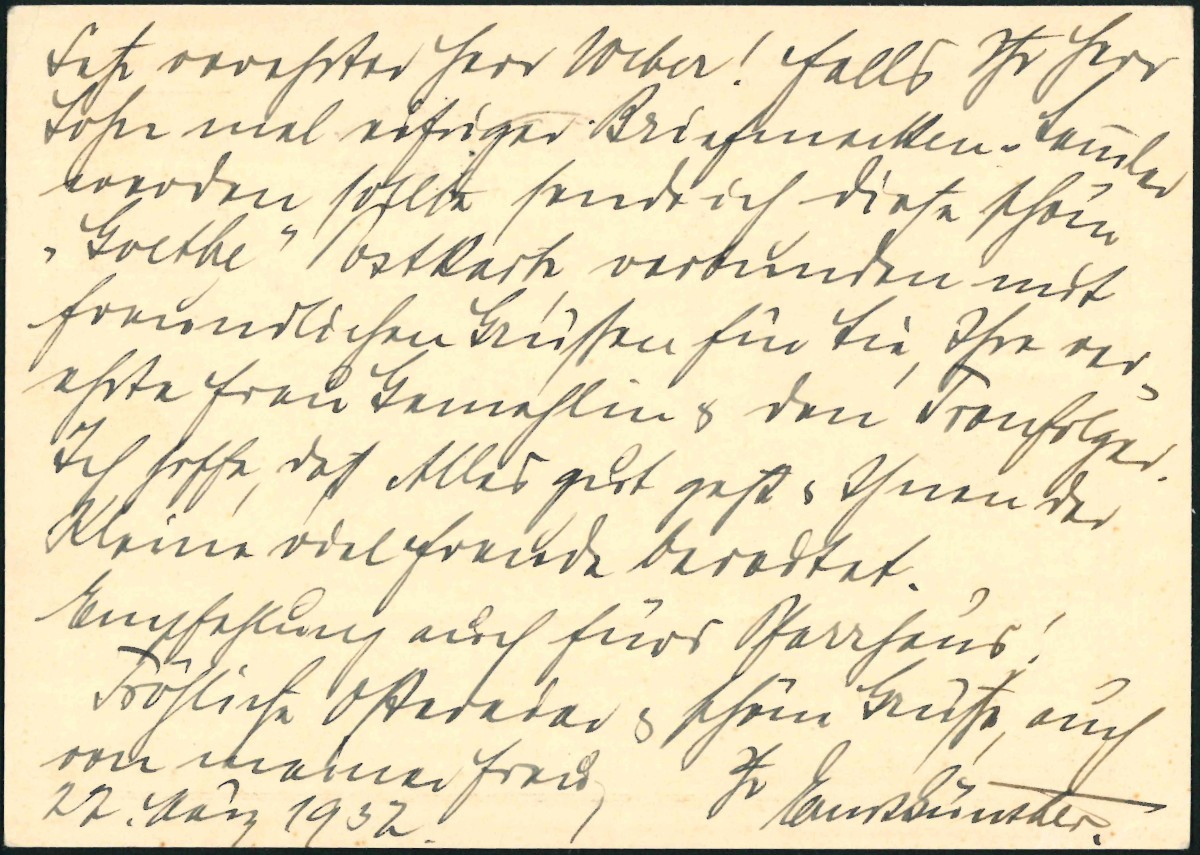 Sehr verehrter Herr Weber! Falls Ihr Herr
Sohn mal eifriger Briefmarken-Samler
werden sollte sende ich diese schöne
„Goethe“ Postkarte, verbunden mit
freundlichen Grüßen für Sie, Ihre ver-
ehrte Frau Gemahlin & den Tronfolger.
Ich hoffe, daß Alles gut geht & Ihnen der
Kleine viel Freude bereitet.
Empfehlung auch fürs Pfarrhaus!
Fröhliche Ostereier & schöne Grüße, auch
von meiner Frau, Ihr
22. März 1932.